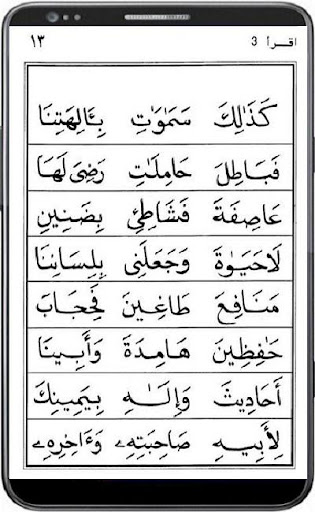 اقرأ 3 ١٣
كَذَٰلِكَ سَمَٰوَٰتِ بِـَٔالِهَتِنَا
فَبَاطِلَ حَامِلَٰتِ رَضِىَ لَهَا
عَاصِفَةَ فَشَاطِئِ بِضَنِينِ
لَاحَيَوٰةَ وَجَعَلَنِى بِلِسَانِنَا
مَنَافِعَ طَاغِينَ فَحِجَابَ
حَٰفِظِينَ هَامِدَةَ وَأَبِينَا
أَحَادِيثَ وَإِلَٰهِ بِيَمِينِكَ
لِأَبِيهِ صَاحِبَتِهِۦ وَءَاخِرِهِۦ